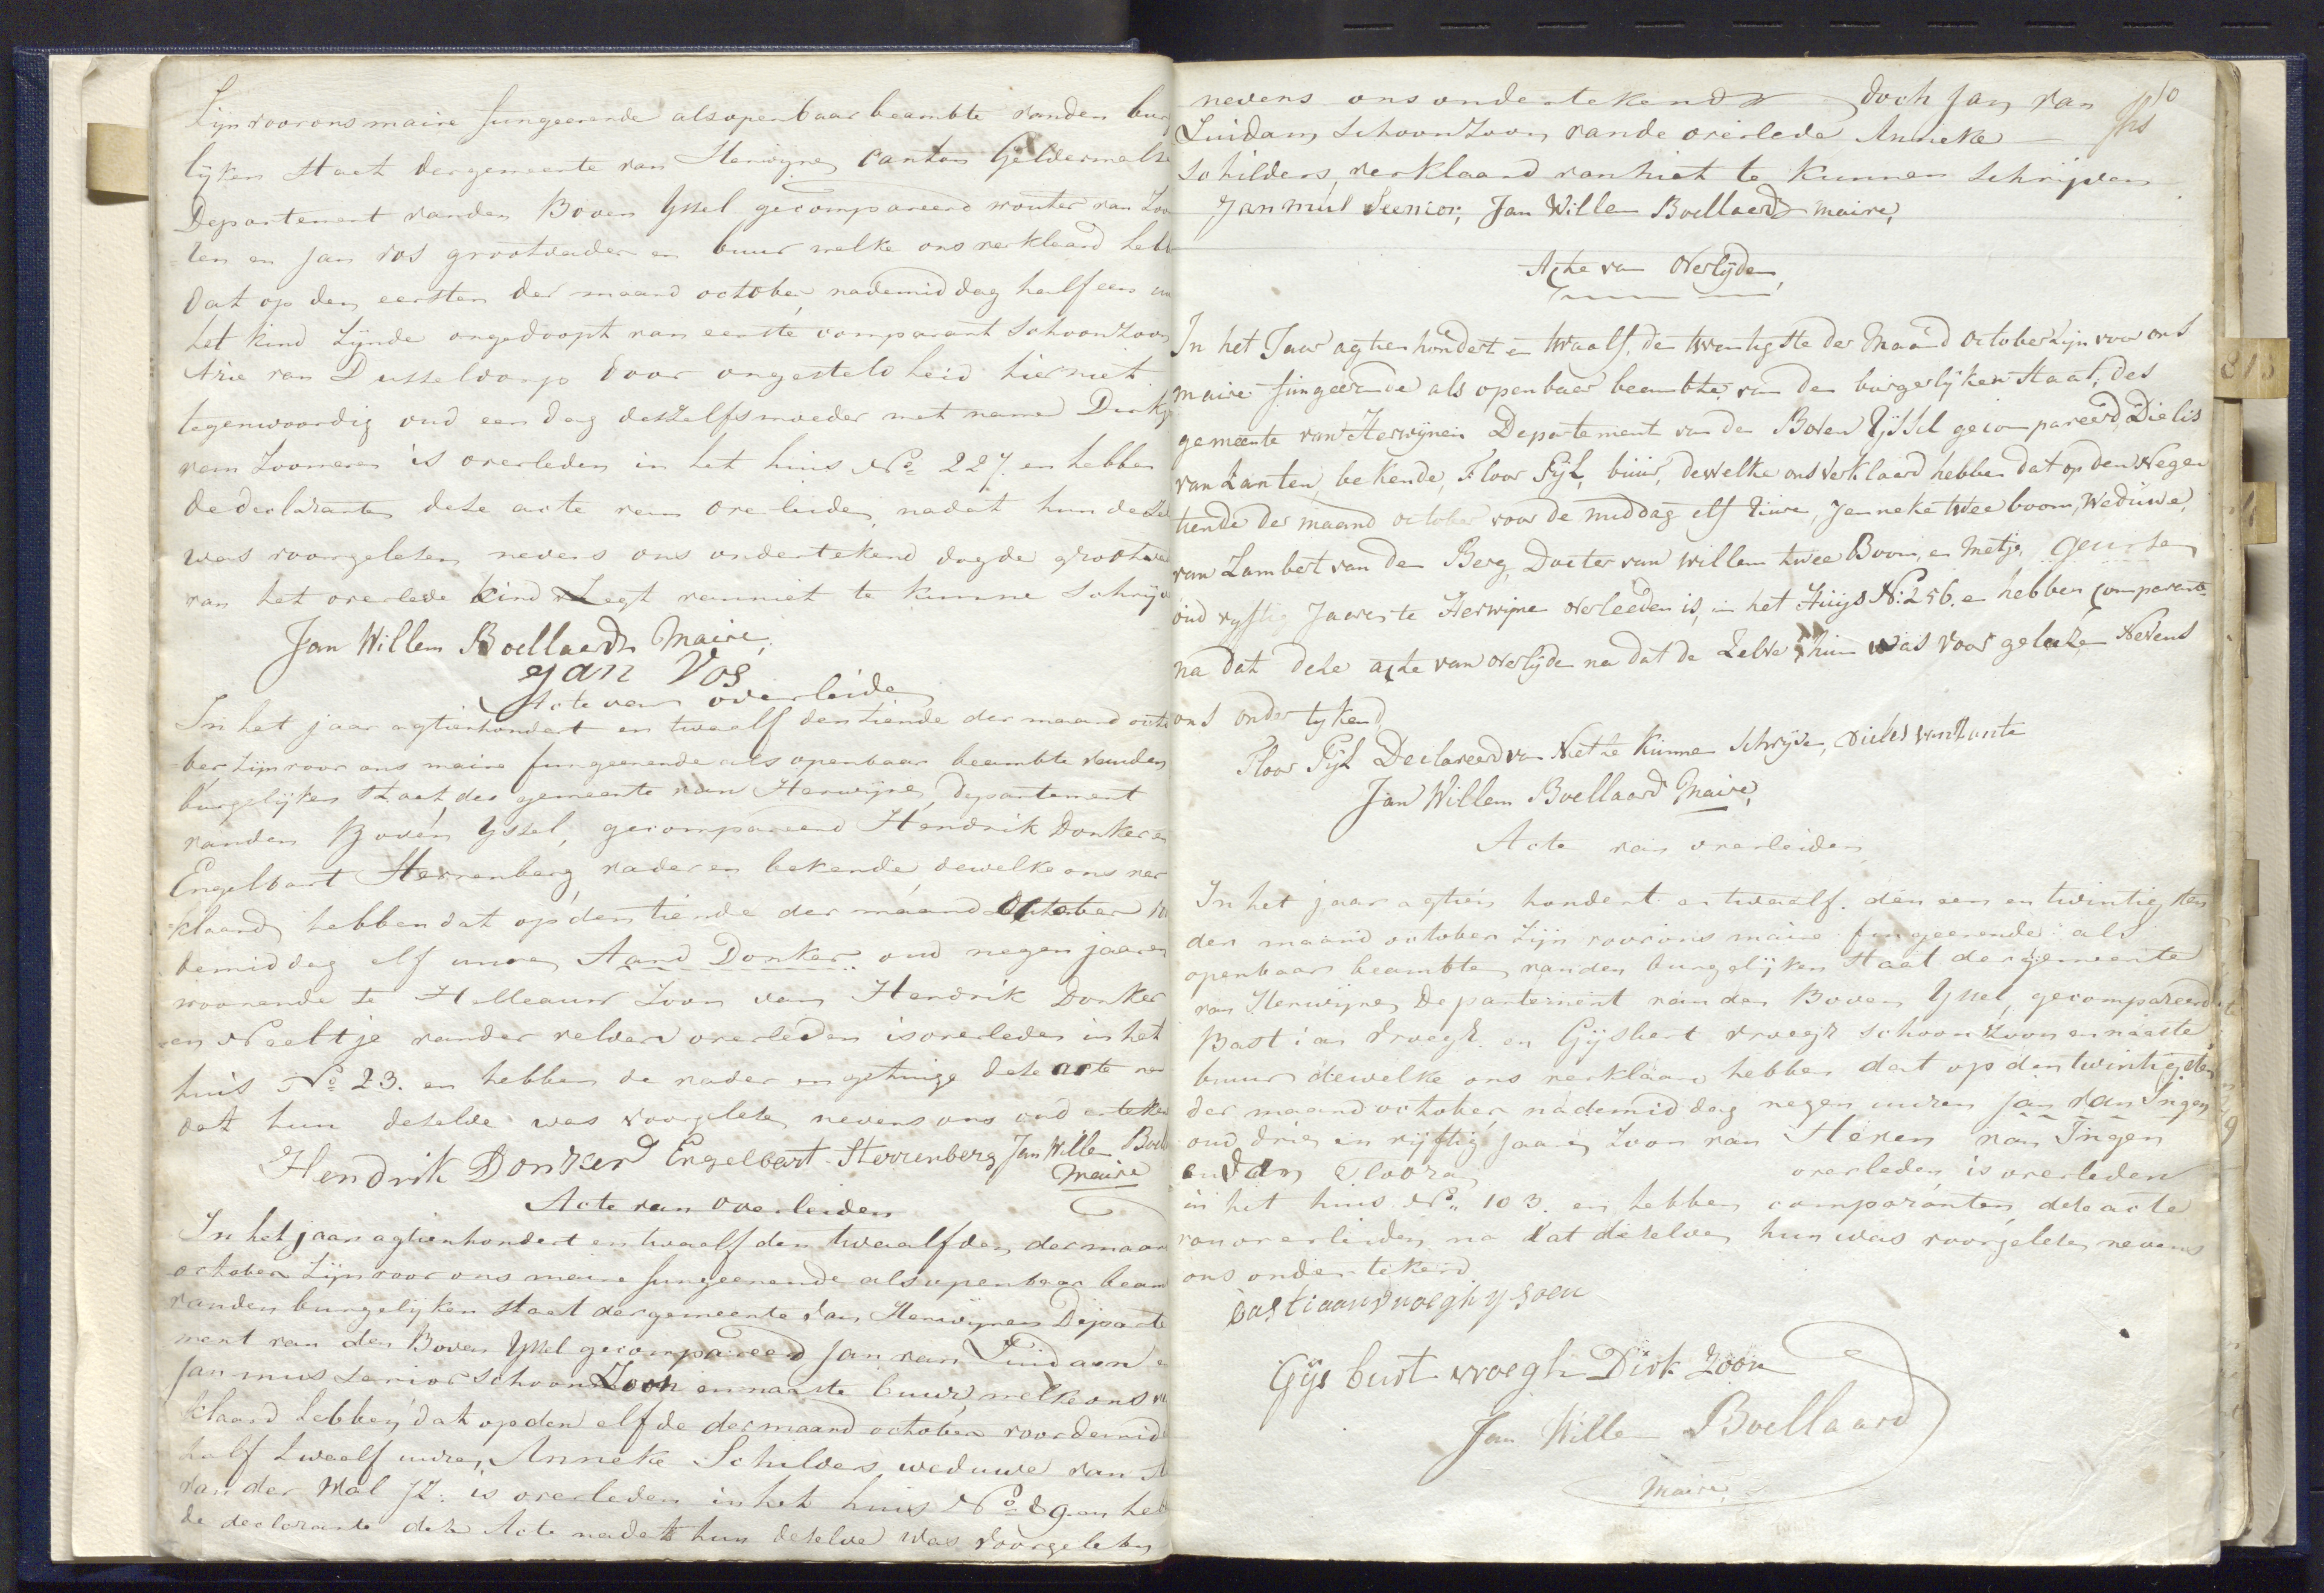 Zijn voor ons maire fungeerende als openbaar beambte vanden bur
lijken staat der gemeente van Herwijnen canton Geldermalse
Departement vanden Boven Yssel gecompareerd wouter van Zoo
len en Jan vos grootvader en buur welke ons verklaard hebb
dat op den eersten der maand october nademiddag half een uu
het kind zijnde ongedoopt van eerste comparant schoonzoon
Arie van Dusseldorp door ongesteldheid hier niet
tegenwoordig oud een dag deszelfs moeder met name Dirkje
van Zooneren is overleden in het huis No 227. en hebben
de declarante deze acte van overleiden nadat hun dezel
was voorgelesen nevens ons ondertekend dogde grootva
van het overlede kind zegt van niet te kunne schrijve
Jan Willem Boellaard Maire,
Jan Vos
Acte van overleiden
In het jaar agtienhondert en twaelf den tiende der maand octo
ber zijn voor ons maire fungeerende als openbaar beambte vanden
burgelijken staat der gemeente van Herwijnen, departement
vanden Boven Yssel, gecompareerd Hendrik Donker en
Engelbart Herrenberg, vader en bekende, dewelke ons ver
klaard hebben dat op den tiende der maand October vo
demiddag elf uuren Aard Donker oud negen jaaren
woonende te Helleauw zoon van Hendrik Donker
en Neeltje vander velden overleden is overleden in het
huis No 23. en hebben de vader en getuige dese acte na
dat hun deselve was voorgelesen nevens ons ondertekend
Hendrik Donker Engelbart Herrenberg Jan Willem Boell
Maire
Acte van overleiden
In het jaar agtienhondert en twaalf den twaalfden der maan
october zijn voor ons maire fungeerende als openbaar beam
vanden burgelijken staat der gemeente van Herwijnen Departe
ment van den Boven Yssel gecompareerd Jan van Zuidam e
Jan mus senior schoonzoon en naaste buur, welke ons v
klaard hebben, dat op den elfde der maand october voordemid
half twaelf uuren, Anneke Schilders weduwe van
van der Mal JZ: is overleden in het huis No 89 en heb
de declarante deze Acte nadat hun deselve was voorgelesen
nevens ons ondertekend doch Jan van
Zuidam schoonzoon vande overlede Anneke
Schilders, verklaard van niet te kunnen schrijven
Jan mus Seenior, Jan Willem Boellaard maire,
10
Acte van Overlijden,
In het Jaar agtien hondert en twaalf, den twentigste der Maand October zijn voor ons
maire fungeerende als openbaer beambte van den burgerlijken staat, des
gemeente van Herwijnen Departement van den Boven Yssel gecompareerd, Dielis
van Zanten, bekende, Floor Pijl, buur, dewelke ons verklaard hebben dat op den Negen
tiende der maand october voor de middag elf uure, Janneke tweeboom, Weduwe,
van Lambert van den Berg, Docter van Willem twee Boom, en Metje Geursen
oud vyftig Jaaren te Herwijne overleeden is, in het Huys No 256. en hebben comparant
na dat deze acte van overlijden na dat de Zelve hun was voor geleezen Nevens
ons onder tykend
Floor Pijl Declareerd van Niet te kunne schrijve, Dielis van Zante
Jan Willem Boellaard Maire,
Acte van overleiden
In het jaar agtien hondert en twaelf. den een en twintigsten
der maand october zijn voor ons maire fungeerende als
openbaar beambte vanden burgelijken staat der gemeente
van Herwijnen Departement van den Boven Yssel, gecompareerd
Bastiaan vroegh en Gijsbert vroegh schoonzoon en naaste
buur dewelke ons verklaard hebben dat op den twintigsten
der maand october nademiddag negen uuren jan van Ingen
oud drie en vijftig jaaren zoon van Heren van Ingen
overleden is overleden
in het huis No 103. en hebben comparanten dese acte
van overleiden na dat dezelve hun was voorgelese nevens
ons ondertekend
bastiaan vroegh gysoen
Gijsbert vroegh Dirk Zoon
Jan Willem Boellaard
Maire